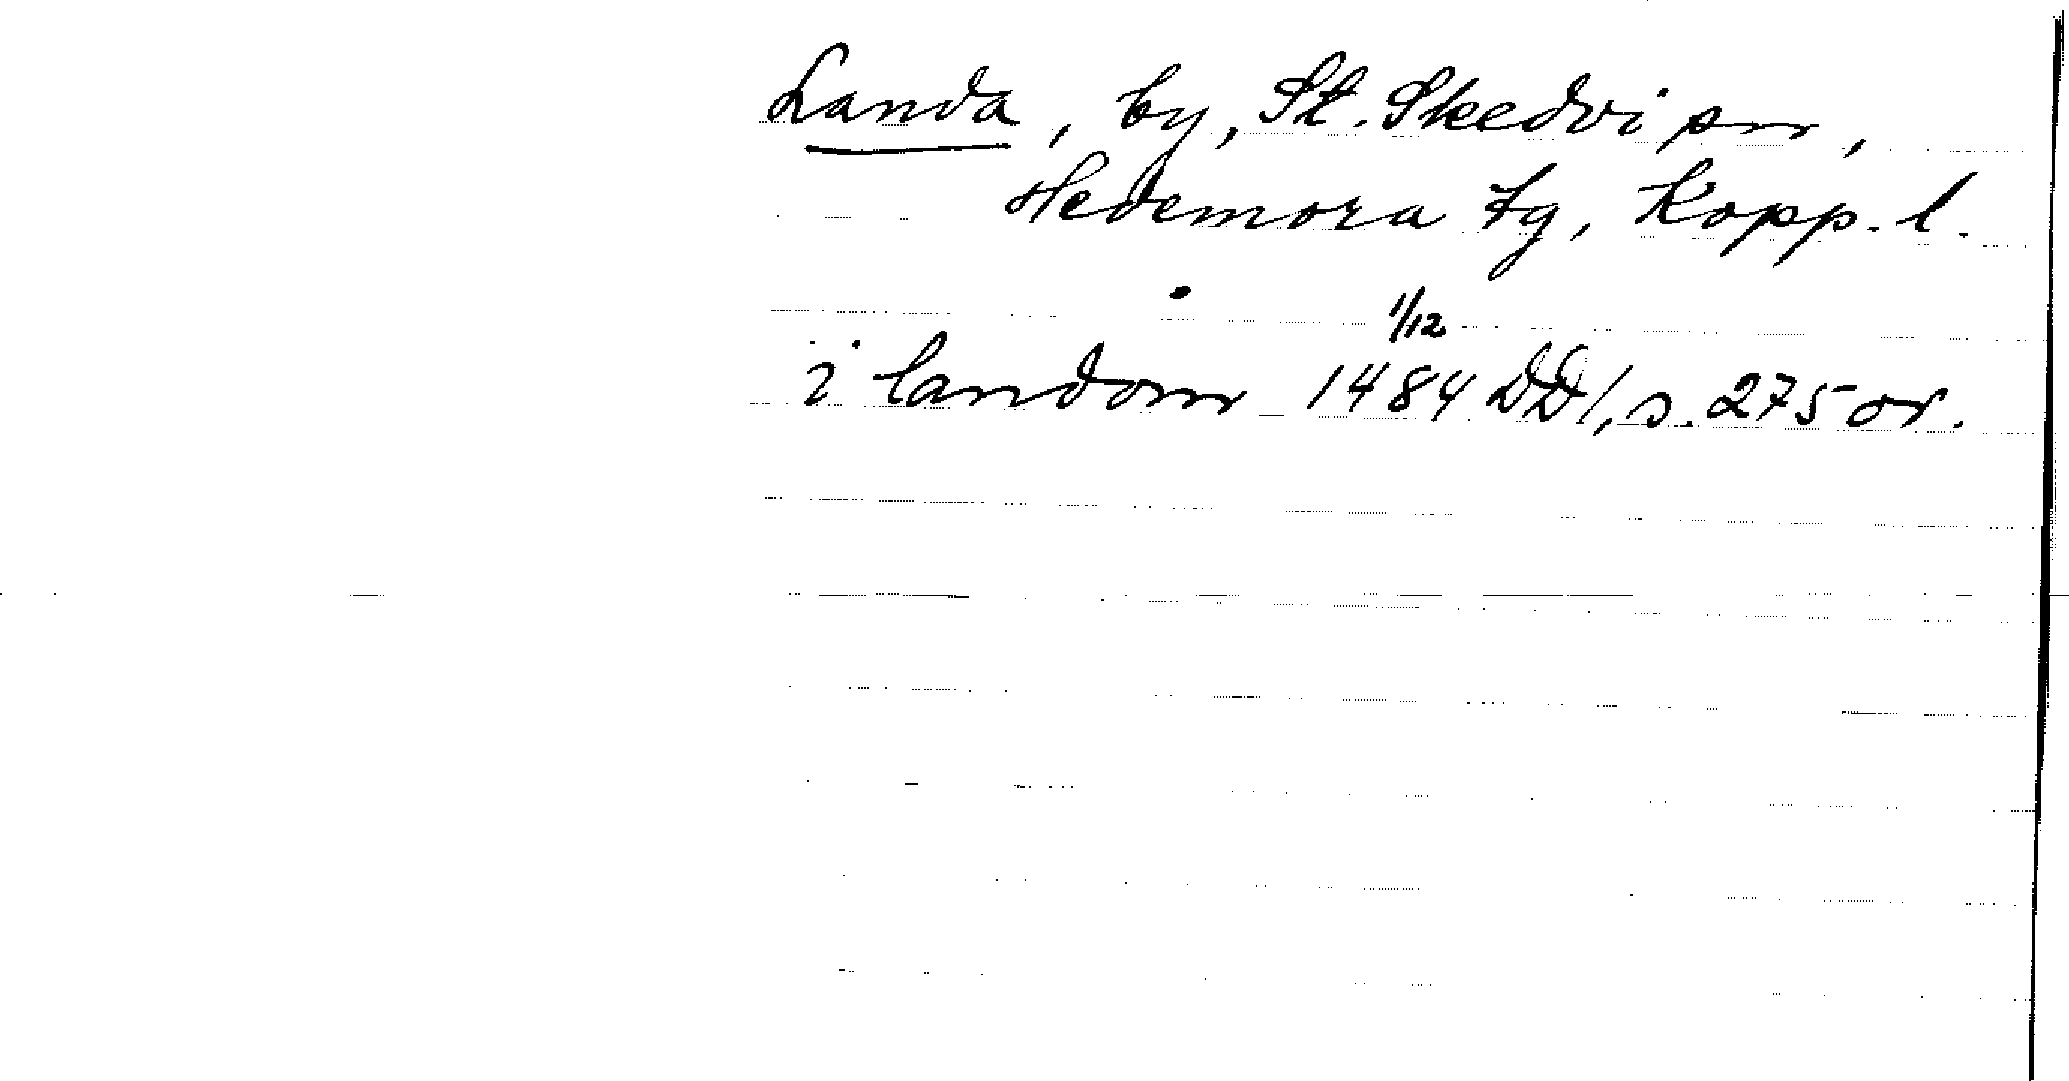 Landa, by, St. Skedvi sn,
Hedemora tg, Kopp. l.
1/12
i landom 1484 DD1, s. 275 or.